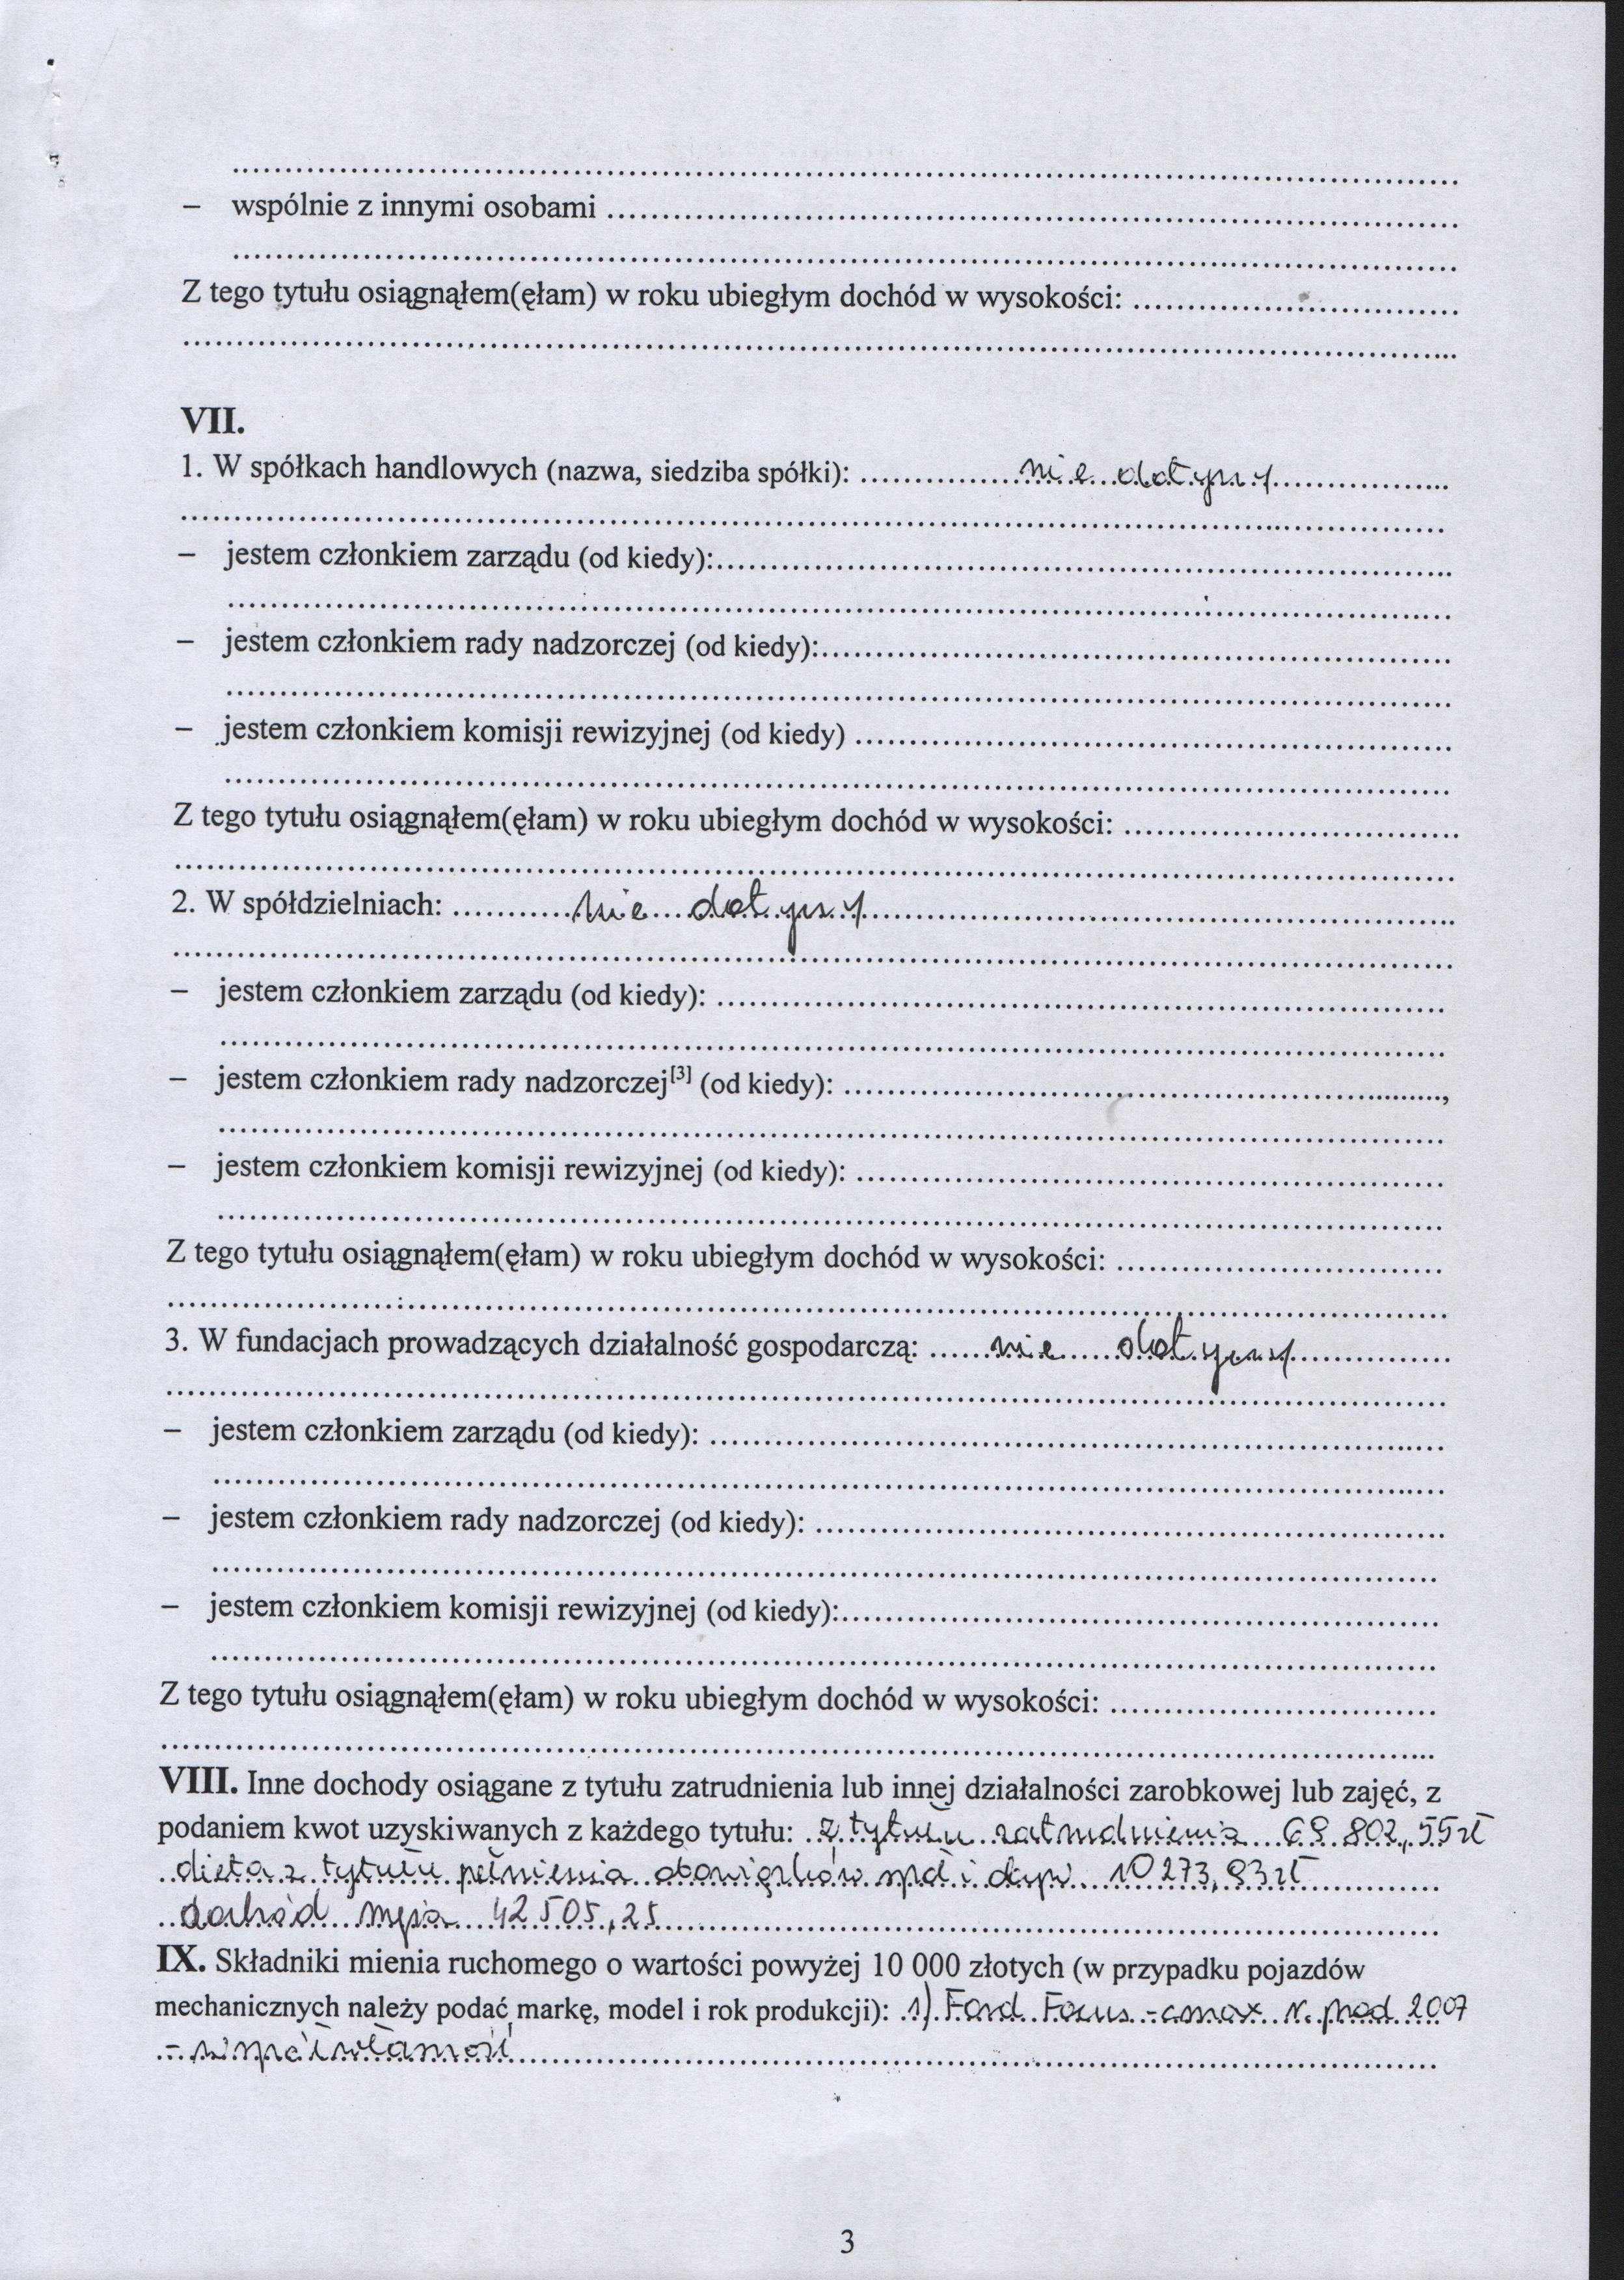 – wspólnie z innymi osobami
Z tego tytułu osiągnąłem(ęłam) w roku ubiegłym dochód w wysokości:
VII.
1. W spółkach handlowych (nazwa, siedziba spółki): nie dotyczy
– jestem członkiem zarządu (od kiedy):
– jestem członkiem rady nadzorczej (od kiedy):
– jestem członkiem komisji rewizyjnej (od kiedy)
Z tego tytułu osiągnąłem(ęłam) w roku ubiegłym dochód w wysokości:
2. W spółdzielniach: nie dotyczy
– jestem członkiem zarządu (od kiedy):
– jestem członkiem rady nadzorczej[3] (od kiedy):
– jestem członkiem komisji rewizyjnej (od kiedy):
Z tego tytułu osiągnąłem(ęłam) w roku ubiegłym dochód w wysokości:
3. W fundacjach prowadzących działalność gospodarczą: nie dotyczy
– jestem członkiem zarządu (od kiedy):
– jestem członkiem rady nadzorczej (od kiedy):
– jestem członkiem komisji rewizyjnej (od kiedy):
Z tego tytułu osiągnąłem(ęłam) w roku ubiegłym dochód w wysokości:
VIII. Inne dochody osiągane z tytułu zatrudnienia lub innej działalności zarobkowej lub zajęć, z
podaniem kwot uzyskiwanych z każdego tytułu: z tytułu zatrudnienia 69.802,55 zł
dieta z tytułu pełnienia obowiązków społ i 10 273,93 zł
dochód męża 42 505,25
IX. Składniki mienia ruchomego o wartości powyżej 10 000 złotych (w przypadku pojazdów
mechanicznych należy podać markę, model i rok produkcji): 1) Ford Focus - cmax r. prod. 2007
- współwłasność
3